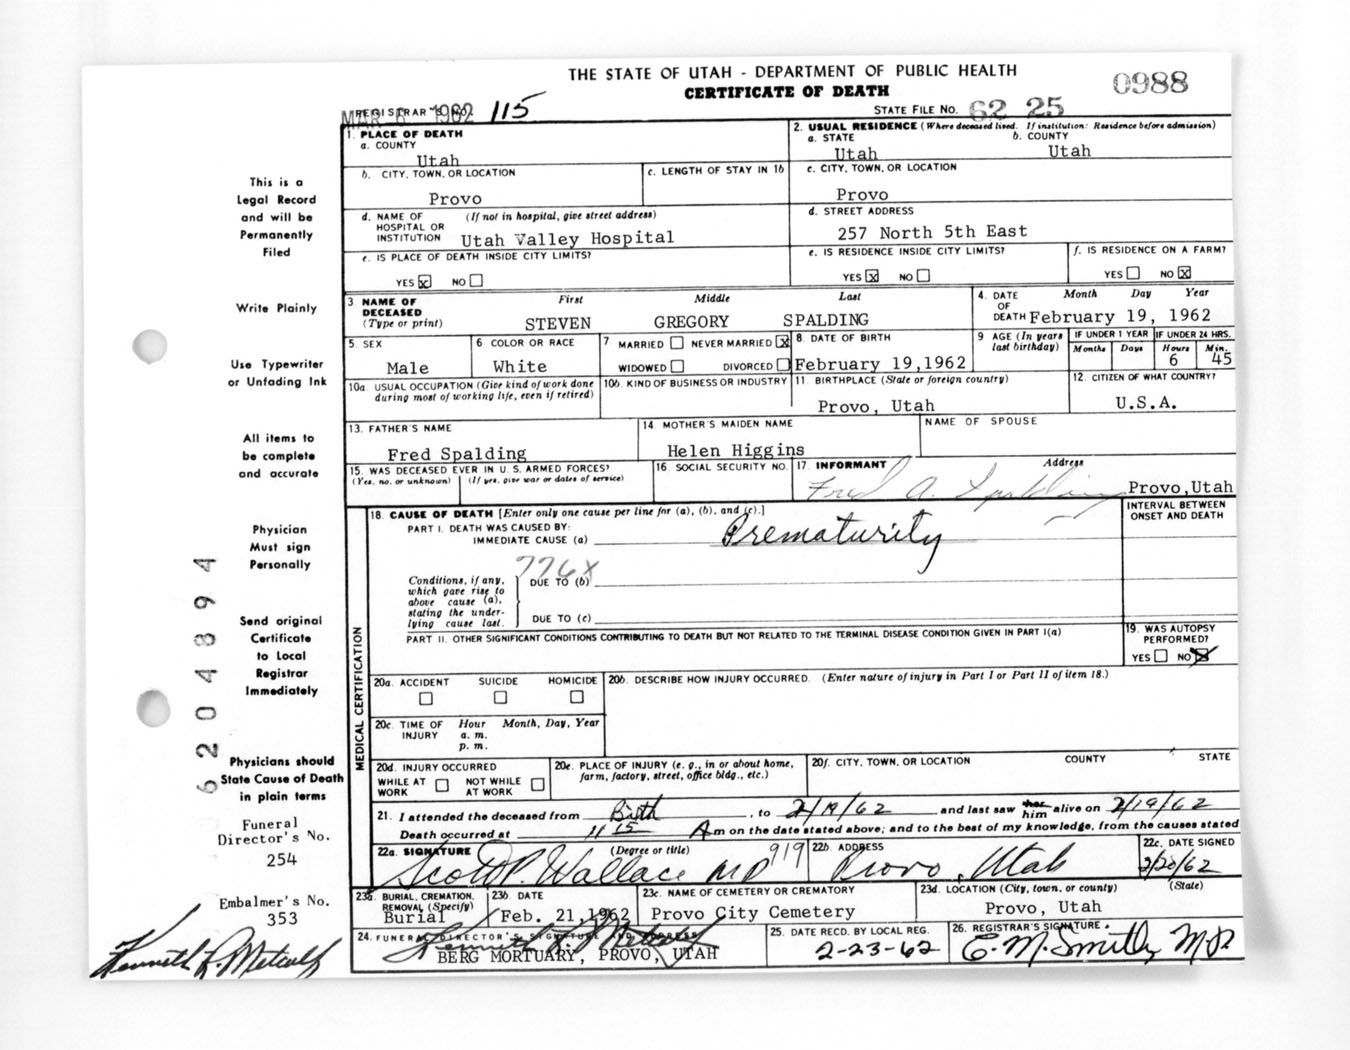 THE STATE OF UTAH - DEPARTMENT OF PUBLIC HEALTH
0988
CERTIFICATE OF DEATH
MAR 6 1962
REGISTRAR'S NO. 115
STATE FILE NO. 62 25
1. PLACE OF DEATH
a. COUNTY
Utah
2. USUAL RESIDENCE (Where deceased lived. If institution: Residence before admission)
a. STATE
Utah
b. COUNTY
Utah
b. CITY, TOWN, OR LOCATION
Provo
c. LENGTH OF STAY IN 1b
c. CITY, TOWN, OR LOCATION
Provo
d. NAME OF HOSPITAL OR INSTITUTION (If not in hospital, give street address)
Utah Valley Hospital
d. STREET ADDRESS
257 North 5th East
e. IS PLACE OF DEATH INSIDE CITY LIMITS?
YES x NO
e. IS RESIDENCE INSIDE CITY LIMITS?
YES x NO
f. IS RESIDENCE ON A FARM?
YES NO x
3. NAME OF DECEASED (Type or print)
First Middle Last
STEVEN GREGORY SPALDING
4. DATE OF DEATH
Month Day Year
February 19, 1962
5. SEX
Male
6 COLOR OR RACE
White
7 MARRIED NEVER MARRIED x
WIDOWED DIVORCED
8. DATE OF BIRTH
February 19,1962
9 AGE (In years last birthday)
IF UNDER 1 YEAR
Months Days
IF UNDER 24 HRS.
Hours Min.
6 45
10a. USUAL OCCUPATION (Give kind of work done during most of working life, even if retired)
10b. KIND OF BUSINESS OR INDUSTRY
11. BIRTHPLACE (State or foreign country)
Provo, Utah
12. CITIZEN OF WHAT COUNTRY?
U.S.A.
13. FATHER'S NAME
Fred Spalding
14. MOTHER'S MAIDEN NAME
Helen Higgins
NAME OF SPOUSE
15. WAS DECEASED EVER IN U.S. ARMED FORCES?
(Yes, no, or unknown) (If yes, give war or dates of service)
16. SOCIAL SECURITY NO.
17. INFORMANT
Address
Fred A. Spalding Provo,Utah
18. CAUSE OF DEATH [Enter only one cause per line for (a), (b), and (c).]
INTERVAL BETWEEN ONSET AND DEATH
PART I. DEATH WAS CAUSED BY:
IMMEDIATE CAUSE (a) Prematurity
776X
Conditions, if any, which gave rise to above cause (a), stating the underlying cause last.
DUE TO (b)
DUE TO (c)
PART II. OTHER SIGNIFICANT CONDITIONS CONTRIBUTING TO DEATH BUT NOT RELATED TO THE TERMINAL DISEASE CONDITION GIVEN IN PART I(a)
19. WAS AUTOPSY PERFORMED?
YES NO x
MEDICAL CERTIFICATION
20a. ACCIDENT SUICIDE HOMICIDE
20b. DESCRIBE HOW INJURY OCCURRED. (Enter nature of injury in Part I or Part II of item 18.)
20c. TIME OF INJURY
Hour Month, Day, Year
a. m.
p. m.
20d. INJURY OCCURRED
WHILE AT WORK NOT WHILE AT WORK
20e. PLACE OF INJURY (e. g., in or about home, farm, factory, street, office bldg., etc.)
20f. CITY, TOWN, OR LOCATION COUNTY STATE
21. I attended the deceased from Birth, to 2/19/62 and last saw her him alive on 2/19/62
Death occurred at 11 15 Am on the date stated above; and to the best of my knowledge, from the causes stated
22a. SIGNATURE (Degree or title)
Scott P. Wallace MD 919
22b. ADDRESS
Provo, Utah
22c. DATE SIGNED
2/20/62
23a. BURIAL, CREMATION, REMOVAL (Specify)
Burial
23b. DATE
Feb. 21,1962
23c. NAME OF CEMETERY OR CREMATORY
Provo City Cemetery
23d. LOCATION (City, town, or county) (State)
Provo, Utah
24. FUNERAL DIRECTOR'S SIGNATURE AND ADDRESS
BERG MORTUARY, PROVO, UTAH
25. DATE RECD. BY LOCAL REG.
2-23-62
26. REGISTRAR'S SIGNATURE
E. M. Smith, M.D.
This is a
Legal Record
and will be
Permanently
Filed
Write Plainly
Use Typewriter
or Unfading Ink
All items to
be complete
and accurate
Physician
Must sign
Personally
Send original
Certificate
to Local
Registrar
Immediately
Physicians should
State Cause of Death
in plain terms
Funeral
Director's No.
254
Embalmer's No.
353
Kenneth L. Metcalf
6204894